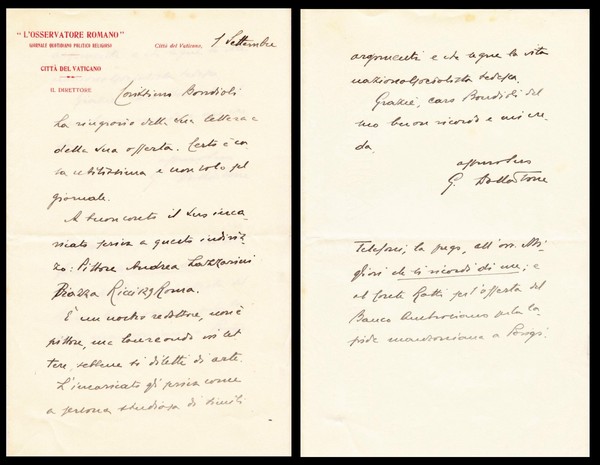 "L'OSSERVATORE ROMANO"
GIORNALE QUOTIDIANO POLITICO RELIGIOSO
CITTÀ DEL VATICANO
IL DIRETTORE
Città del Vaticano, 1 Settembre
Carissimo Bondioli
La ringrazio della sua lettera e
della sua offerta. Certo è co
sa utilissima e non solo pel
giornale.
A buon conto il suo inca-
ricato scriva a questo indiriz-
zo: Pittore Andrea Lazzarini
Piazza Ricci 29 Roma.
È un nostro redattore, non è
pittore, ma laureando in let
tere, sebbene si diletti di arte.
L'incaricato gli scriva come
a persona studiosa di simili
argomenti e che segue la vita
nazionalsocialista tedesca.
Grazie, caro Bondioli del
suo buon ricordo e mi cre-
da.
G. Dalla Torre
Telefoni, la prego, all'on. Mi-
gliori che si ricordi di me; e
al Conte Ratti pel'offerta del
Banco Ambrosiano per la la
pide manzoniana a